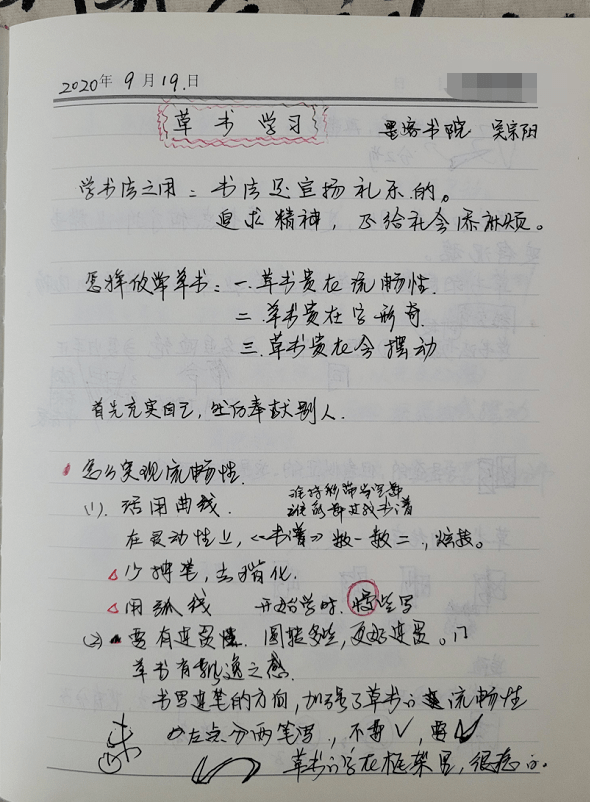 2020年9月19日
草书学习
墨客书院 吴宗阳
学书法之用：书法是宣扬礼乐的。
追求精神，不给社会添麻烦。
怎样欣学草书：一.草书贵在流畅性.
二.草书贵在字形奇.
三.草书贵在会摆动
首先充实自己，然后奉献别人.
怎么实现流畅性.
(1).活用曲线.
在灵动性上，《书谱》数一数二，炫技。
△少掉笔，去楷化.
△用弧线 开始学时.慢些写
(2) 要有连贯性.圆转多些，更好连贯。
草书有飘逸之感.
书写连笔的方向，加强了草书的流畅性
左点分两笔写，不要✓，要
草书的字在框架里，很稳的.